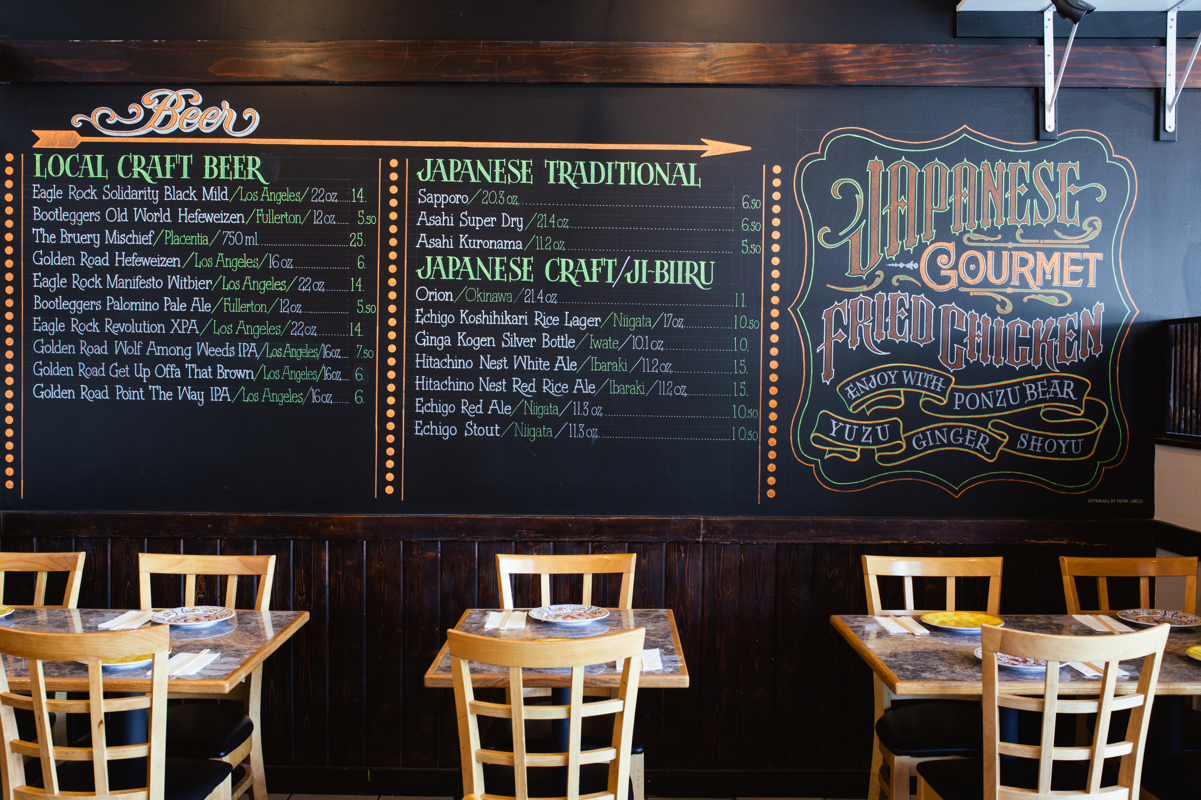 Beer
LOCAL CRAFT BEER
Eagle Rock Solidarity Black Mild/Los Angeles/22oz.....14.
Bootleggers Old World Hefeweizen/Fullerton/12oz.....5.50
The Bruery Mischief/Placentia/750ml..........25.
Golden Road Hefeweizen/Los Angeles/16oz..........6.
Eagle Rock Manifesto Witbier/Los Angeles/22oz.....14.
Bootleggers Palomino Pale Ale/Fullerton/12oz..........5.50
Eagle Rock Revolution XPA/Los Angeles/22oz..........14.
Golden Road Wolf Among Weeds IPA/Los Angeles/16oz...7.50
Golden Road Get Up Offa That Brown/Los Angeles/16oz...6.
Golden Road Point The Way IPA/Los Angeles/16oz.....6.
JAPANESE TRADITIONAL
Sapporo/20.3oz....................6.50
Asahi Super Dry/21.4oz....................6.50
Asahi Kuronama/11.2oz....................5.50
JAPANESE CRAFT/JI-BIIRU
Orion/Okinawa/21.4oz....................11.
Echigo Koshihikari Rice Lager/Niigata/17oz..........10.50
Ginga Kogen Silver Bottle/Iwate/10.1oz..........10.
Hitachino Nest White Ale/Ibaraki/11.2oz..........15.
Hitachino Nest Red Rice Ale/Ibaraki/11.2oz..........15.
Echigo Red Ale/Niigata/11.3oz....................10.50
Echigo Stout/Niigata/11.3oz....................10.50
JAPANESE
GOURMET
FRIED CHICKEN
ENJOY WITH
PONZU BEAR
YUZU GINGER SHOYU
LETTERING BY PETER